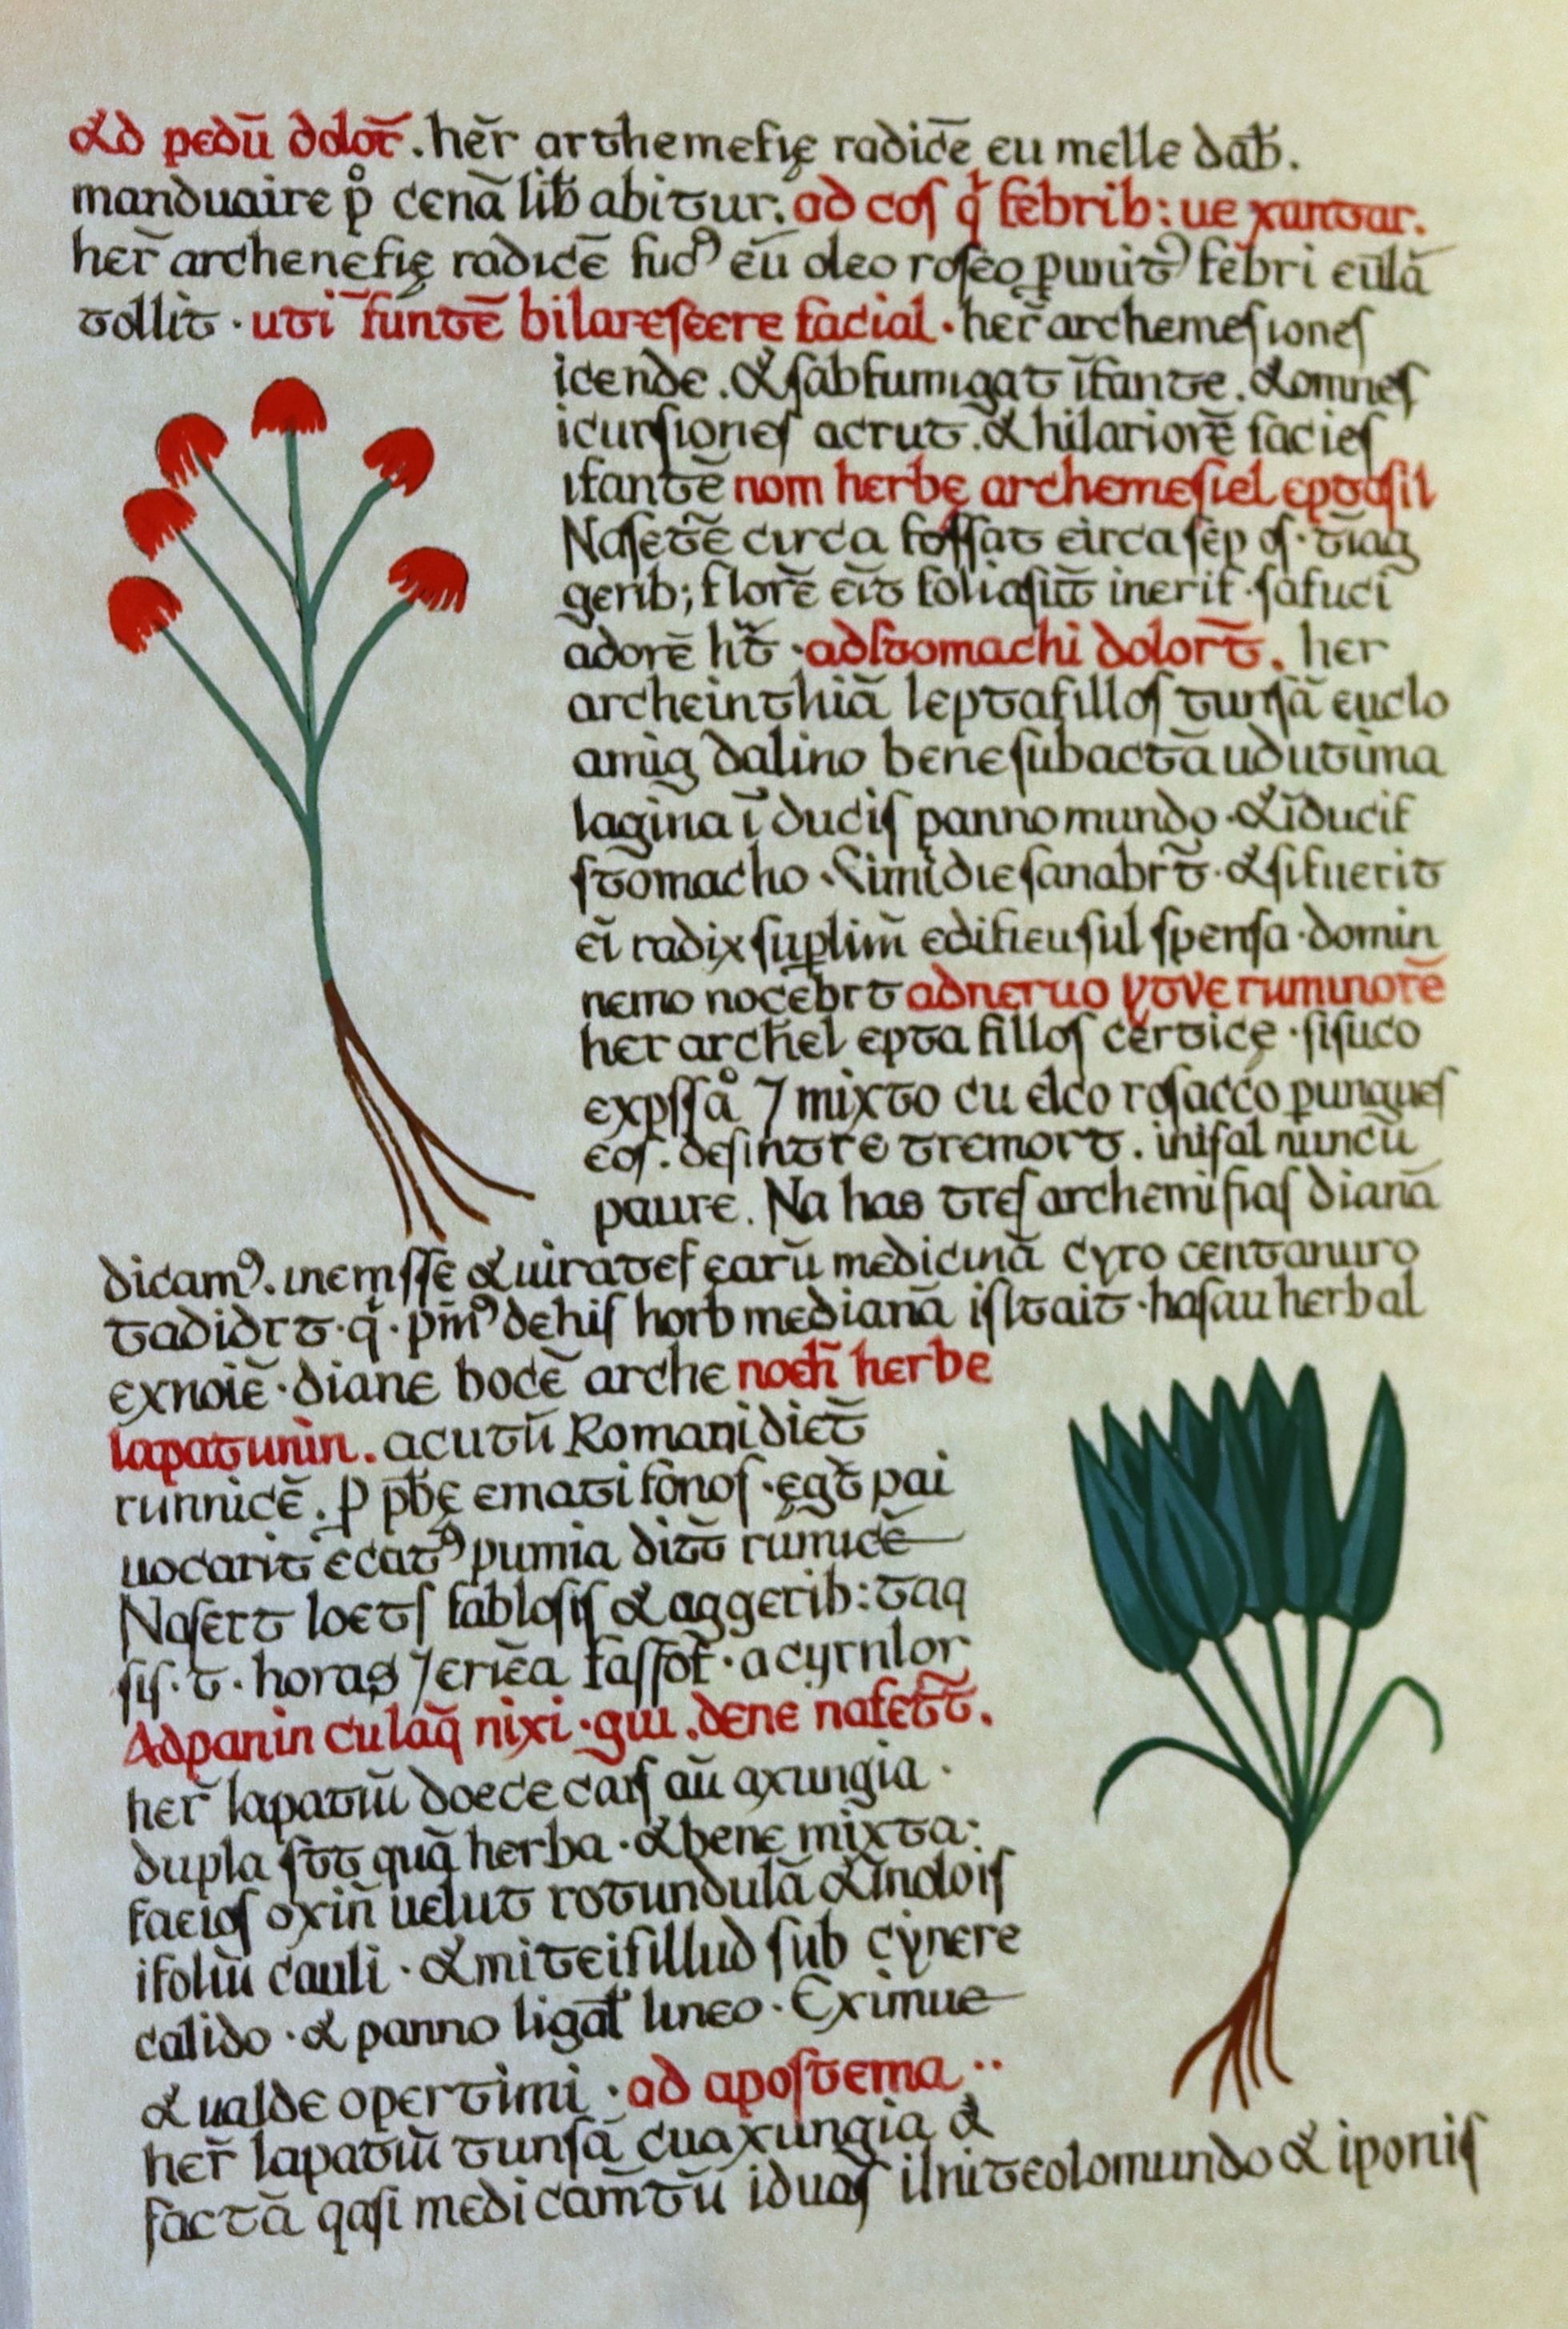 Ad pedū dolor̄. her̄ arthemesię radicē eu melle dab̄.
manduaire p̊ cenā lib̄ abitur. ad cos q̇ febrib: ue xuntar.
her̄ archenefię radicē sucꝰ eū oleo roseo punitꝰ febri eūlā
tollit · uti funtē bilarescere facial · her̄ archemesiones
icende. & sabfumigat īfante. & omnes
icursiones acrut. & hilariorē facies
ifantē nom herbę archemesiel eptasil
Nasetē circa fossat circa sep os · tiag
gerib; florē eīt foliasut̄ inerif · safuci
adorē ht̄ · adstomachi dolort̄. her
archeinthiā leptafillos tunsā euclo
amig dalino bene subactā udutima
lagina ī ducis panno mundo · & iducif
stomacho · Simidie sanabrt̄ · & sifuerit
ei radix suplim̄ edifieu sul spensa · domin
nemo nocebrt adneruo ytve ruminorē
her archel epta fillos certice · sisuco
expsså ⁊ mixto cu elco rosacco punques
eos. desintre tremort. inifal nuncū
paure. Na has tres archemisias dianā
dicamꝰ. inemsse & uiratef earū medicinā cyro centanuro
tadidrt · q̇ · pm̄ꝰ dehis horb medianā isltait · hasau herbal
exnoiē · diane bocē arche noch̄ herbe
lapatunin. acutū Romani dict̄
runnicē. p pbę emati fonos · ęgt̄ pai
uocarit ecatꝰ pumia ditt̄ rumicē
Nasert loets sablosis & aggerib: taq
sis · t · horas ⁊ eriēa fassot̄ · a cyrnlor
Adpanin culaq̄ nixi · gui. dene nafett̄.
her̄ lapatiū doece cais aū axungia ·
dupla stt quā herba · & bene mixta:
facios oxin̄ uelut rotundulā & indois
ifoliū cauli · & miteifillud sub cynere
calido · & panno ligat̄ lineo · Eximue
& ualde opertimi · ad apostema ··
her̄ lapatiū tunsā cuaxungia &
factā qasi medicam̄tū iduas ilniteolomundo & iponis